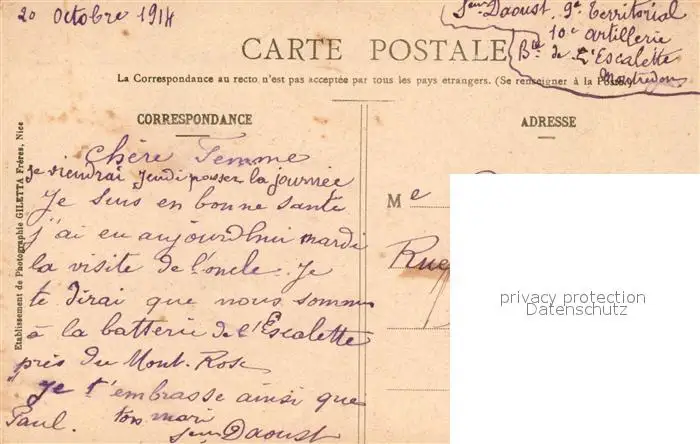 20 Octobre 1914
Daoust, 9e Territorial
10e Artillerie
Bie de L'Escalette
Montredon
CARTE POSTALE
La Correspondance au recto n'est pas acceptée par tous les pays étrangers. (Se renseigner à la Poste)
CORRESPONDANCE
ADRESSE
Etablissement de Photographie GILETTA Frères, Nice
Chère Femme
je viendrai jeudi passer la journée
Je suis en bonne santé
j'ai eu aujourd'hui mardi
la visite de l'oncle. Je
te dirai que nous sommes
à la batterie de l'Escalette
près du Mont-Rose
je t'embrasse ainsi que
Paul. ton mari
Daoust
Me
Rue
privacy protection
Datenschutz